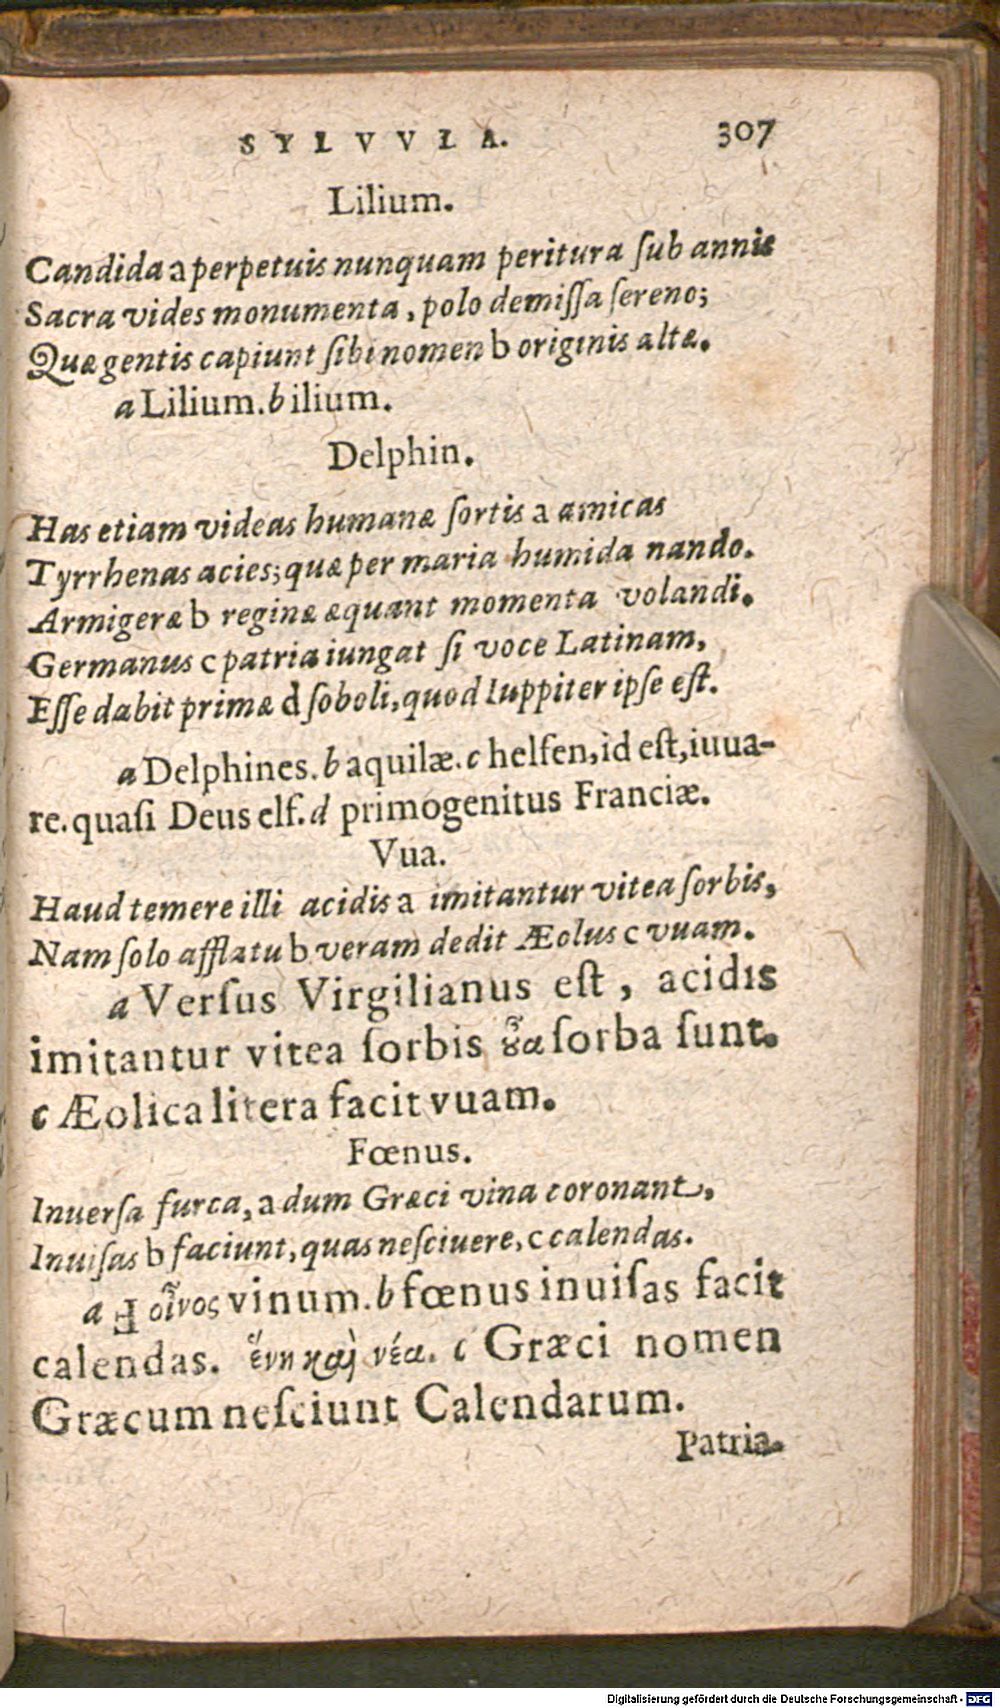 SYLVVLA. 307
Lilium.
Candida a perpetuis nunquam peritura ſub annis
Sacra vides monumenta, polo demiſſa ſereno;
Quæ gentis capiunt ſibi nomen b originis altæ.
a Lilium. b ilium.
Delphin.
Has etiam videas humanæ ſortis a amicas
Tyrrhenas acies; quæ per maria humida nando.
Armigeræ b reginæ æquant momenta volandi.
Germanus c patria iungat ſi voce Latinam,
Eſſe dabit primæ d ſoboli, quod Iuppiter ipſe eſt.
a Delphines. b aquilæ. c helfen, id eſt, iuua-
re. quaſi Deus elf. d primogenitus Franciæ.
Vua.
Haud temere illi acidis a imitantur vitea ſorbis,
Nam ſolo afflatu b veram dedit Æolus c vuam.
a Verſus Virgilianus eſt, acidis
imitantur vitea ſorbis ὄα ſorba ſunt.
c Æolica litera facit vuam.
Fœnus.
Inuerſa furca, a dum Græci vina coronant,
Inuiſas b faciunt, quas neſciuere, c calendas.
a Ⅎ οἶνος vinum. b fœnus inuiſas facit
calendas. ἕνη καὶ νέα. c Græci nomen
Græcum neſciunt Calendarum.
Patria.
Digitalisierung gefördert durch die Deutsche Forschungsgemeinschaft - DFG